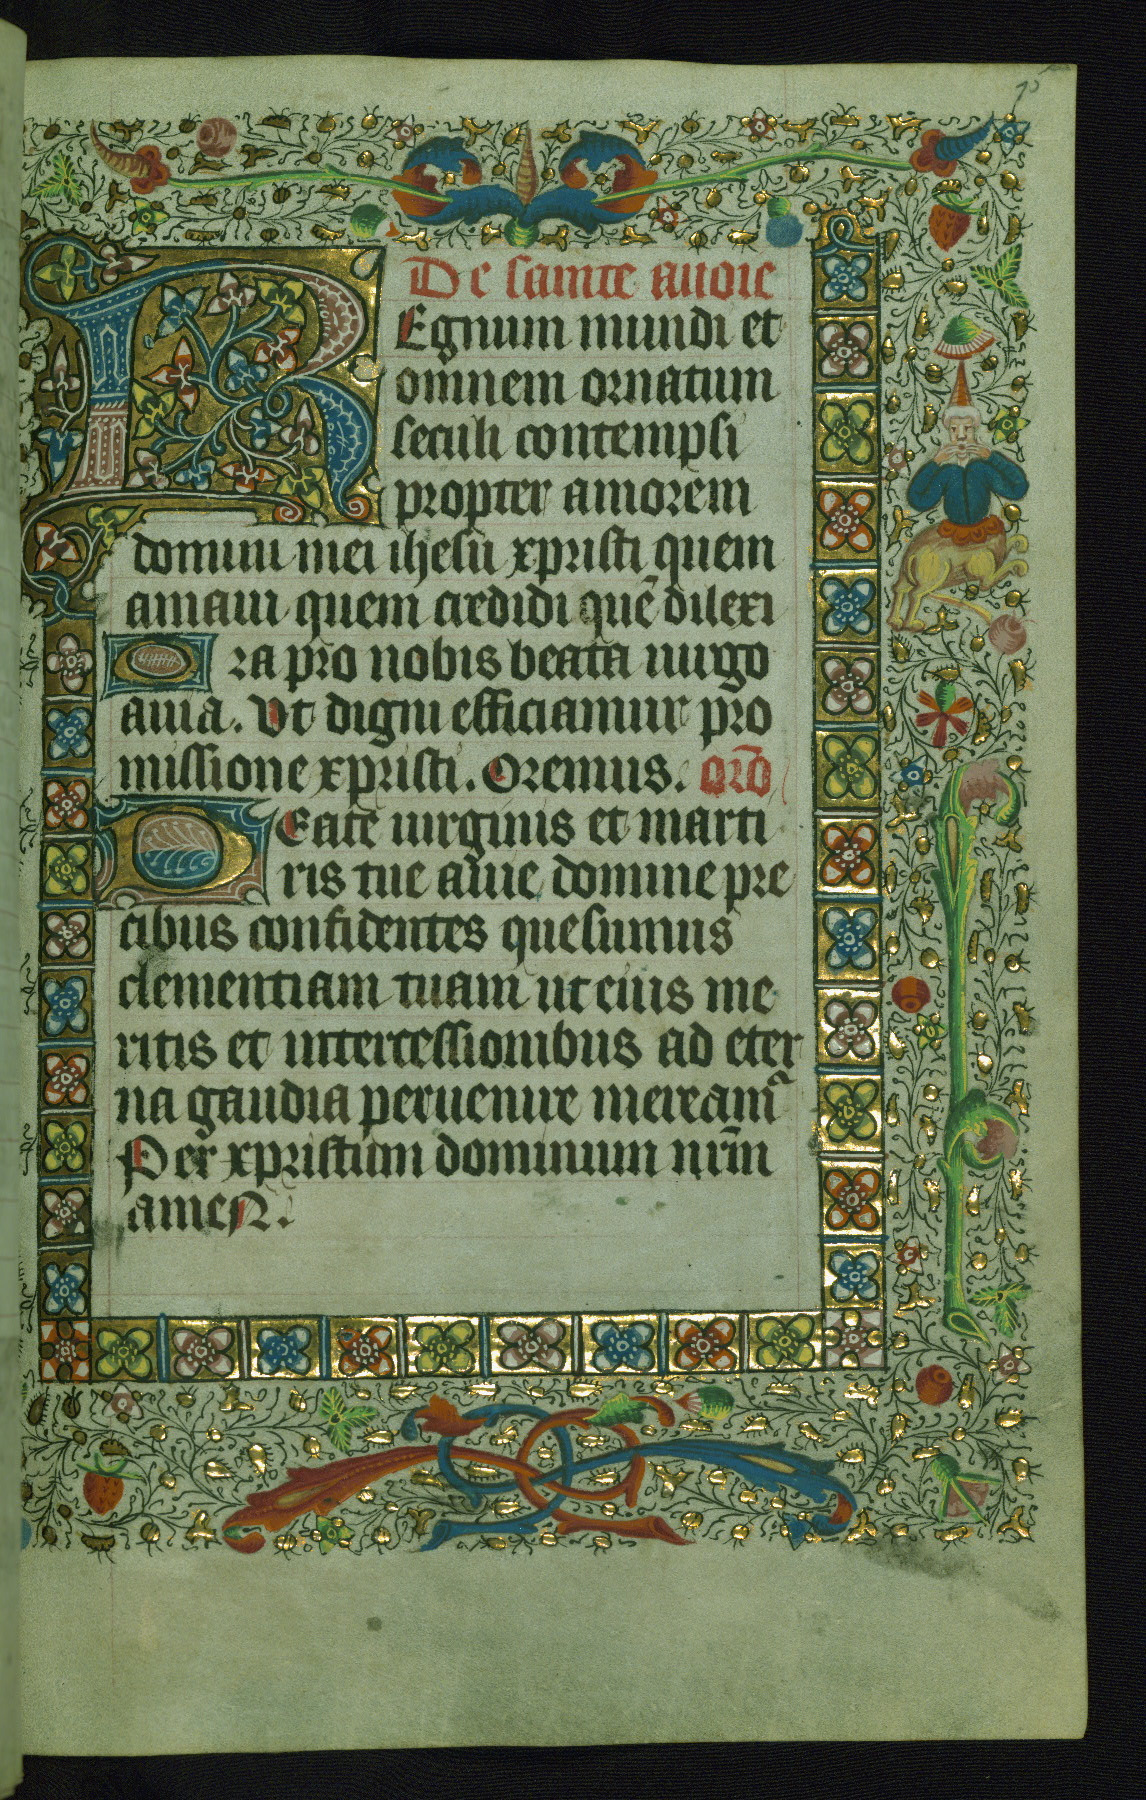 De sainte auoie
REgnum mundi et
omnem ornatum
seculi contempsi
propter amorem
domini mei ihesu xpristi quem
amaui quem credidi quē dilexi
Ora pro nobis beata uirgo
auia. Vt digni efficiamur pro
missione xpristi. Oremus. orō
BEate uirginis et marti
ris tue auie domine pre
cibus confidentes quesumus
clementiam tuam ut eius me
ritis et intercessionibus ad eter
na gaudia peruenire mereamr̄
Per xpristum dominum nrm̄
amen.